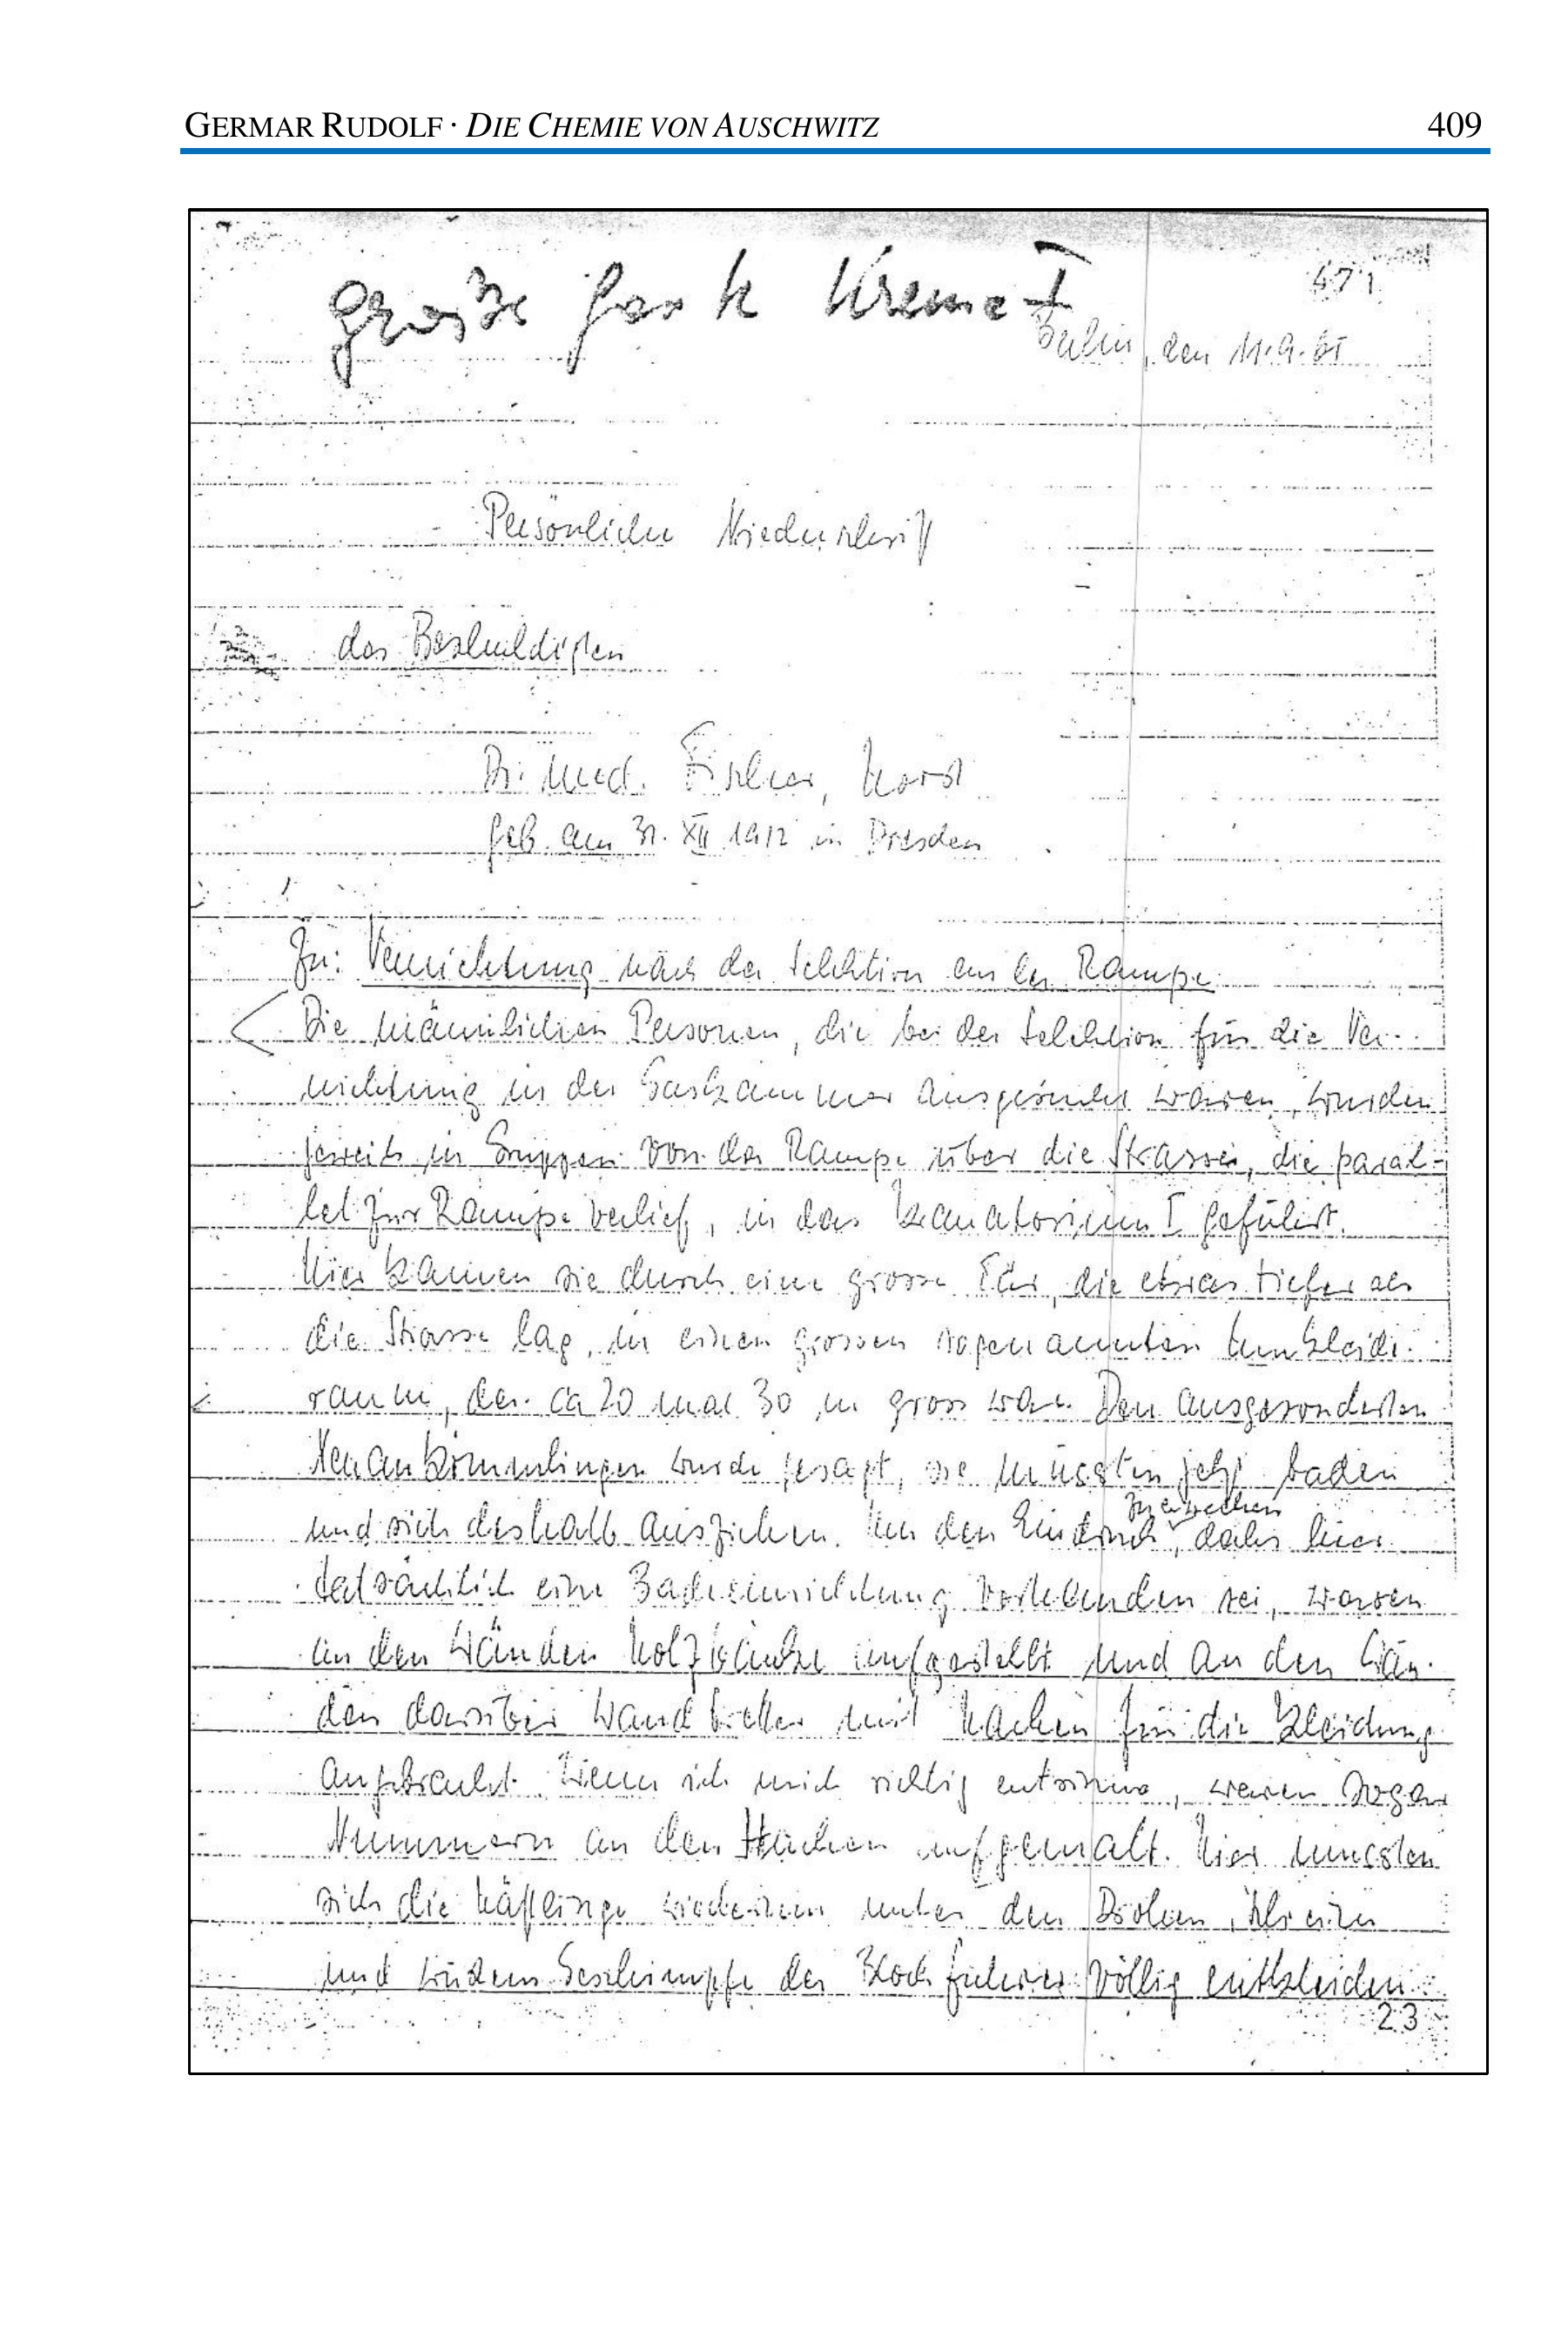 GERMAR RUDOLF · DIE CHEMIE VON AUSCHWITZ 409
große Gask Krema I
671
Berlin, den 11.9.65
Persönliche Niederschrift
des Beschuldigten
Dr. med. Fischer, Horst
geb. am 31. XII 1912 in Dresden
Zu: Vernichtung nach der Selektion an der Rampe
Die männlichen Personen, die bei der Selektion für die Ver-
nichtung in der Gaskammer ausgesucht waren, wurden
jeweils in Gruppen von der Rampe über die Strasse, die paral-
lel zur Rampe verlief, in das Krematorium I geführt.
Hier kamen sie durch eine grosse Tür, die etwas tiefer als
die Strasse lag, in einen grossen sogenannten Umkleide-
raum, der ca 20 mal 30 m gross war. Den ausgesonderten
Neuankömmlingen wurde gesagt, sie müssten jetzt baden
und sich deshalb ausziehen. Um den Eindruck zu erwecken, dass hier
tatsächlich eine Badeeinrichtung vorhanden sei, waren
an den Wänden Holzbänke aufgestellt und an den Wän-
den darüber Wandbretter mit Haken für die Kleidung
angebracht. Wenn ich mich richtig entsinne, waren sogar
Nummern an den Haken aufgemalt. Hier mussten
sich die Häftlinge wiederum unter den Drohen, Schreien
und wüdem Geschimpfe der Blockführer völlig entkleiden.
23